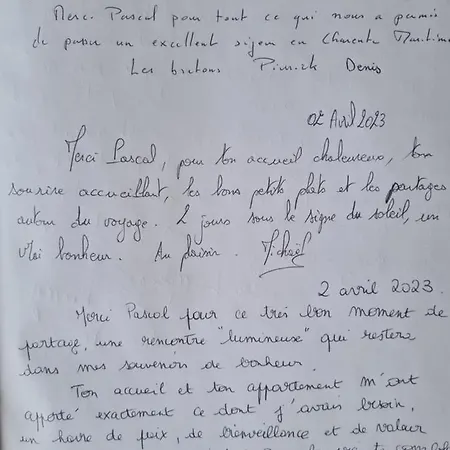 Merci Pascal pour tout ce qui nous a permis
de passer un excellent séjour en Charente Maritime
Les bretons Denis
02 Avril 2023
Merci Pascal, pour ton accueil chaleureux, ton
sourire accueillant, tes bons petits plats et les partages
autour du voyage. 2 jours sous le signe du soleil, un
vrai bonheur. Au plaisir. Michaël
2 avril 2023.
Merci Pascal pour ce très bon moment de
partage, une rencontre "lumineuse" qui restera
dans mes souvenirs de bonheur.
Ton accueil et ton appartement m'ont
apporté exactement ce dont j'avais besoin,
un havre de paix, de bienveillance et de valeur